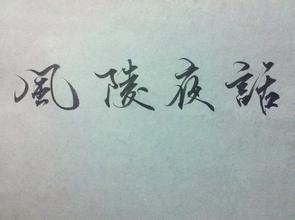 風陵夜話